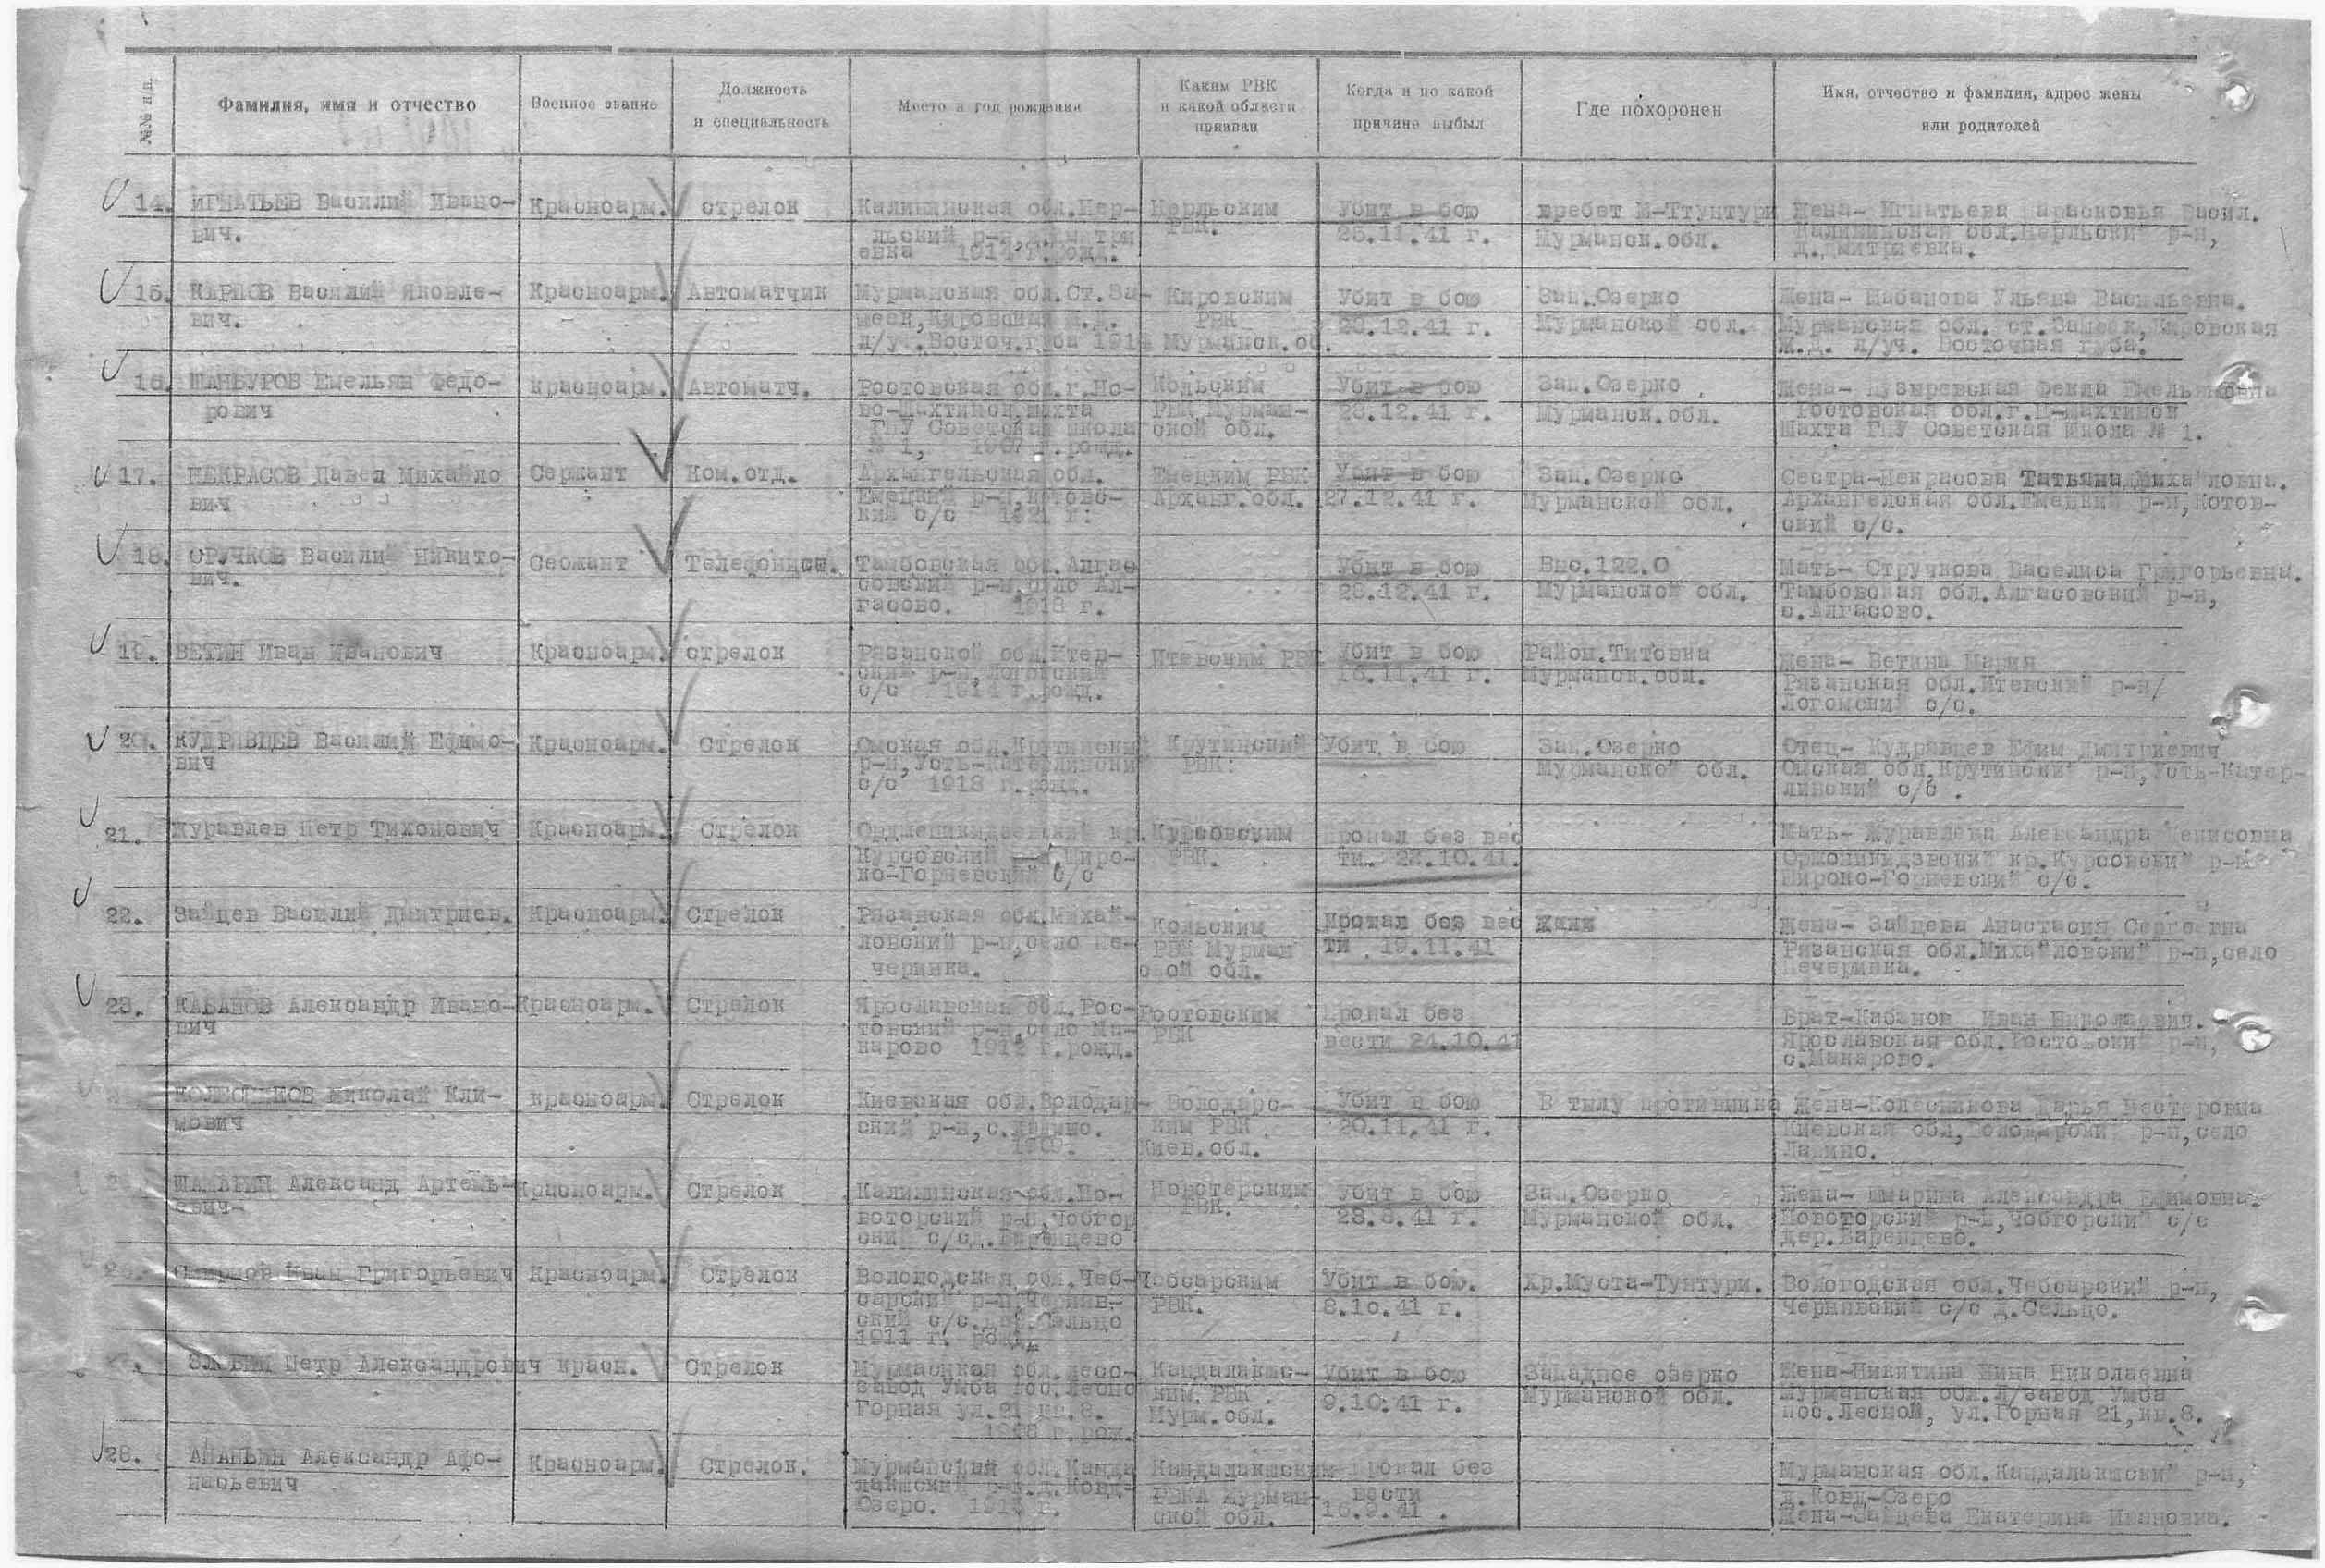 №№ п/п.
Фамилия, имя и отчество
Военное звание
Должность
и специальность
Место и год рождения
Каким РВК
и какой области
призван
Когда и по какой
причине выбыл
Где похоронен
Имя, отчество и фамилия, адрес жены
или родителей
14. ИГНАТЬЕВ Василий Ивано-
вич.
Красноарм.
стрелок
Калининская обл.Нер-
льский р-н,
евка 1914 г.рожд.
Нерльским
РВК.
Убит в бою
25.11.41 г.
хребет М-Ттунтури
Мурманск.обл.
Жена- Игнатьева Парасковья Васил.
Калининская обл.Нерльский р-н,
д.Дмитриевка.
15. КАРПОВ Василий Яковле-
вич.
Красноарм.
Автоматчик
Мурманская обл.Ст.За-
шеек,Кировская ж.д.
л/уч.Восточ.губа
Кировским
РВК
Мурманск.об.
Убит в бою
23.12.41 г.
Зап.Озерко
Мурманской обл.
Жена- Шабанова Ульяна Васильевна.
Мурманская обл. ст.Зашеек,Кировская
Ж.Д. л/уч. Восточная губа.
16. ШАНБУРОВ Емельян Федо-
рович
Красноарм.
Автоматч.
Ростовская обл.г.Но-
во-Шахтинск,шахта
ГПУ Советская школа
№ 1, 1907 г.рожд.
Кольским
РВК Мурман-
ской обл.
Убит в бою
23.12.41 г.
Зап.Озерко
Мурманск.обл.
Жена- Пузыревская Фекла Емельяновна
Ростовская обл.г.Н-Шахтинск
Шахта ГПУ Советская Школа № 1.
17. НЕКРАСОВ Павел Михайло
вич
Сержант
Ком.отд.
Архангельская обл.
Емецкий р-н,Котовс-
кий с/с 1921 г.
Емецким РВК
Арханг.обл.
Убит в бою
27.12.41 г.
Зап.Озерко
Мурманской обл.
Сестра-Некрасова Татьяна Михайловна.
Архангельская обл.Емецкий р-н,Котов-
ский с/с.
18. СРУЧКОВ Василий Никито-
вич.
Сержант
Телефонист.
Тамбовская обл.Алгас
совский р-н,село Ал-
гасово. 1918 г.
Убит в бою
28.12.41 г.
Выс.122.0
Мурманской обл.
Мать- Стручкова Василиса Григорьевны.
Тамбовская обл.Алгасовский р-н,
с.Алгасово.
19. ВЕТИН Иван Иванович
Красноарм.
стрелок
Рязанской обл.Итев-
ский р-н,Логовский
с/с 1914 г.рожд.
Итевским РВК
Убит в бою
16.11.41 г.
Район.Титовка
Мурманск.обл.
Жена- Ветина Мария
Рязанская обл.Итевский р-н/
с/с.
20. КУДРЯВЦЕВ Василий Ефимо-
вич
Красноарм.
Стрелок
Омская обл.Крутинский
р-н,Усть-Катерлинский
с/с 1918 г.рожд.
Крутинский
РВК.
Убит в бою
Зап.Озерко
Мурманской обл.
Отец- Кудрявцев Ефим Дмитриевич
Омская обл.Крутинский р-н,Усть-Катер-
линский с/с .
21. Журавлев Петр Тихонович
Красноарм.
Стрелок
Орджоникидзевский кр.
Курсовский р-н,Широ-
ко-Горневский с/с
Курсовским
РВК.
Пропал без вес
ти. 22.10.41.
Мать- Журавлева Александра Денисовна
Оржоникидзевский кр.Курсовский р-н
Широко-Горневский с/с.
22. Зайцев Василий Дмитриев.
Красноарм.
Стрелок
Рязанская обл.Михай-
ловский р-н,село Пе-
черника.
Кольским
РВК Мурман
ской обл.
Пропал без вес
ти . 19.11.41
Жена- Зайцева Анастасия Сергеевна
Рязанская обл.Михайловский р-н,село
Печерника.
23. КАБАНОВ Александр Ивано-
вич
Красноарм.
Стрелок
Ярославская обл.Рос-
товский р-н,село Ма-
карово 1912 г.рожд.
Ростовским
РВК
Пропал без
вести 24.10.41
Брат-Кабанов Иван Николаевич.
Ярославская обл.Ростовский р-н,
с.Макарово.
КОЛЕСНИКОВ Николай Кли-
мович
красноарм.
Стрелок
Киевская обл.Володар-
ский р-н,с.
Володарс-
ким РВК
Киев.обл.
Убит в бою
20.11.41 г.
В тылу противника
Жена-Колесникова Дарья Нестеровна
Киевская обл,Володарский р-н,село
ШАМАРИН Александ Артемь-
евич-
Красноарм.
Стрелок
Калининская обл.Но-
воторский р-н,Чобгор
ский с/с д.Варенцево
Новоторским
РВК.
Убит в бою
23.8.41 г.
Зап.Озерко
Мурманской обл.
Жена- Шмарина Александра Ефимовна.
Новоторский р-н,Чобгорский с/с
дер.Варенцево.
Смирнов Иван Григорьевич
Красноарм.
Стрелок
Вологодская обл.Чеб-
сарский р-н,Черняв-
ский с/с.дер.Сельцо
1911 г. рожд.
Чебсарским
РВК.
Убит в бою.
8.10.41 г.
Хр.Муста-Тунтури.
Вологодская обл.Чебсарский р-н,
Чернявский с/с д.Сельцо.
Петр Александрович
красн.
Стрелок
Мурманская обл.лесо-
завод Умба пос.Лесно
Горная ул.21 кв.8.
Кандалакшс-
ким. РВК
Мурм.обл.
Убит в бою
9.10.41 г.
Западное озерко
Мурманской обл.
Жена-Никитина Нина Николаевна
Мурманская обл.л/завод Умба
пос.Лесной, ул.Горная 21,кв.8.
28. АНАНЬИН Александр Афо-
насьевич
Красноарм.
Стрелок.
Мурманская обл.Канда
лакшский р-н.д.Ковд-
Озеро. 1913 г.
Кандалакшским
РВКА Мурман-
ской обл.
Пропал без
вести
16.9.41 .
Мурманская обл.Кандалакшский р-н,
д.Ковд-Озеро
Жена-Зайцева Екатерина Ивановна.